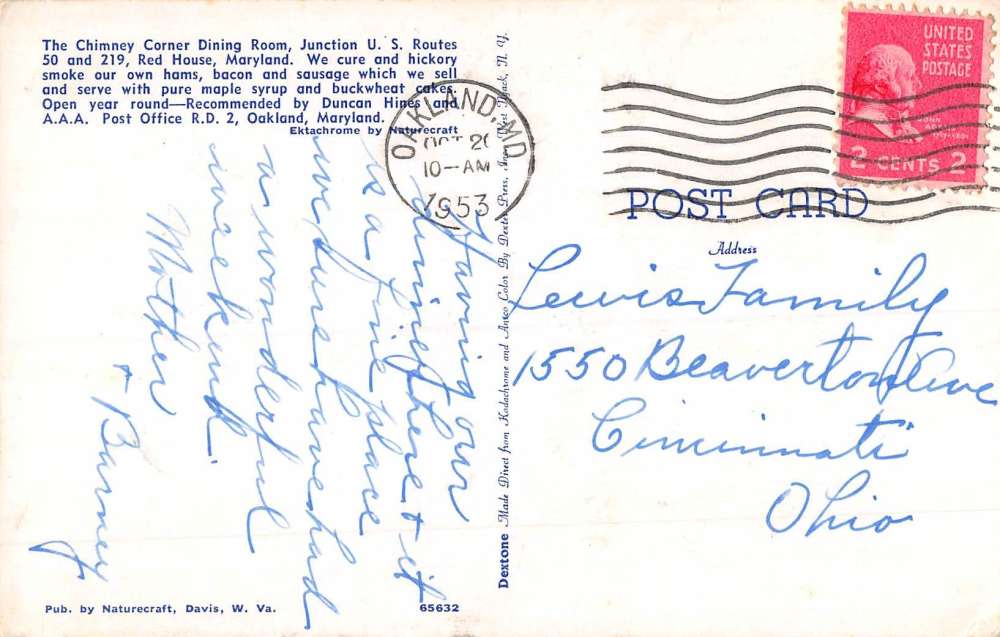 The Chimney Corner Dining Room, Junction U. S. Routes
50 and 219, Red House, Maryland. We cure and hickory
smoke our own hams, bacon and sausage which we sell
and serve with pure maple syrup and buckwheat cakes.
Open year round—Recommended by Duncan Hines and
A.A.A. Post Office R.D. 2, Oakland, Maryland.
Ektachrome by Naturecraft
Having our
dinner here + it
is a fine place
we sure have had
a wonderful
weekend.
Mother
+ Barney
Pub. by Naturecraft, Davis, W. Va.
65632
Dextone Made Direct from Kodachrome and Ansco Color By Dexter Press, Inc. West Nyack, N. Y.
OAKLAND, MD.
OCT 20
10–AM
1953
UNITED
STATES
POSTAGE
JOHN
ADAMS
2 CENTS 2
POST CARD
Address
Lewis Family
1550 Beaverton Ave
Cincinnati
Ohio